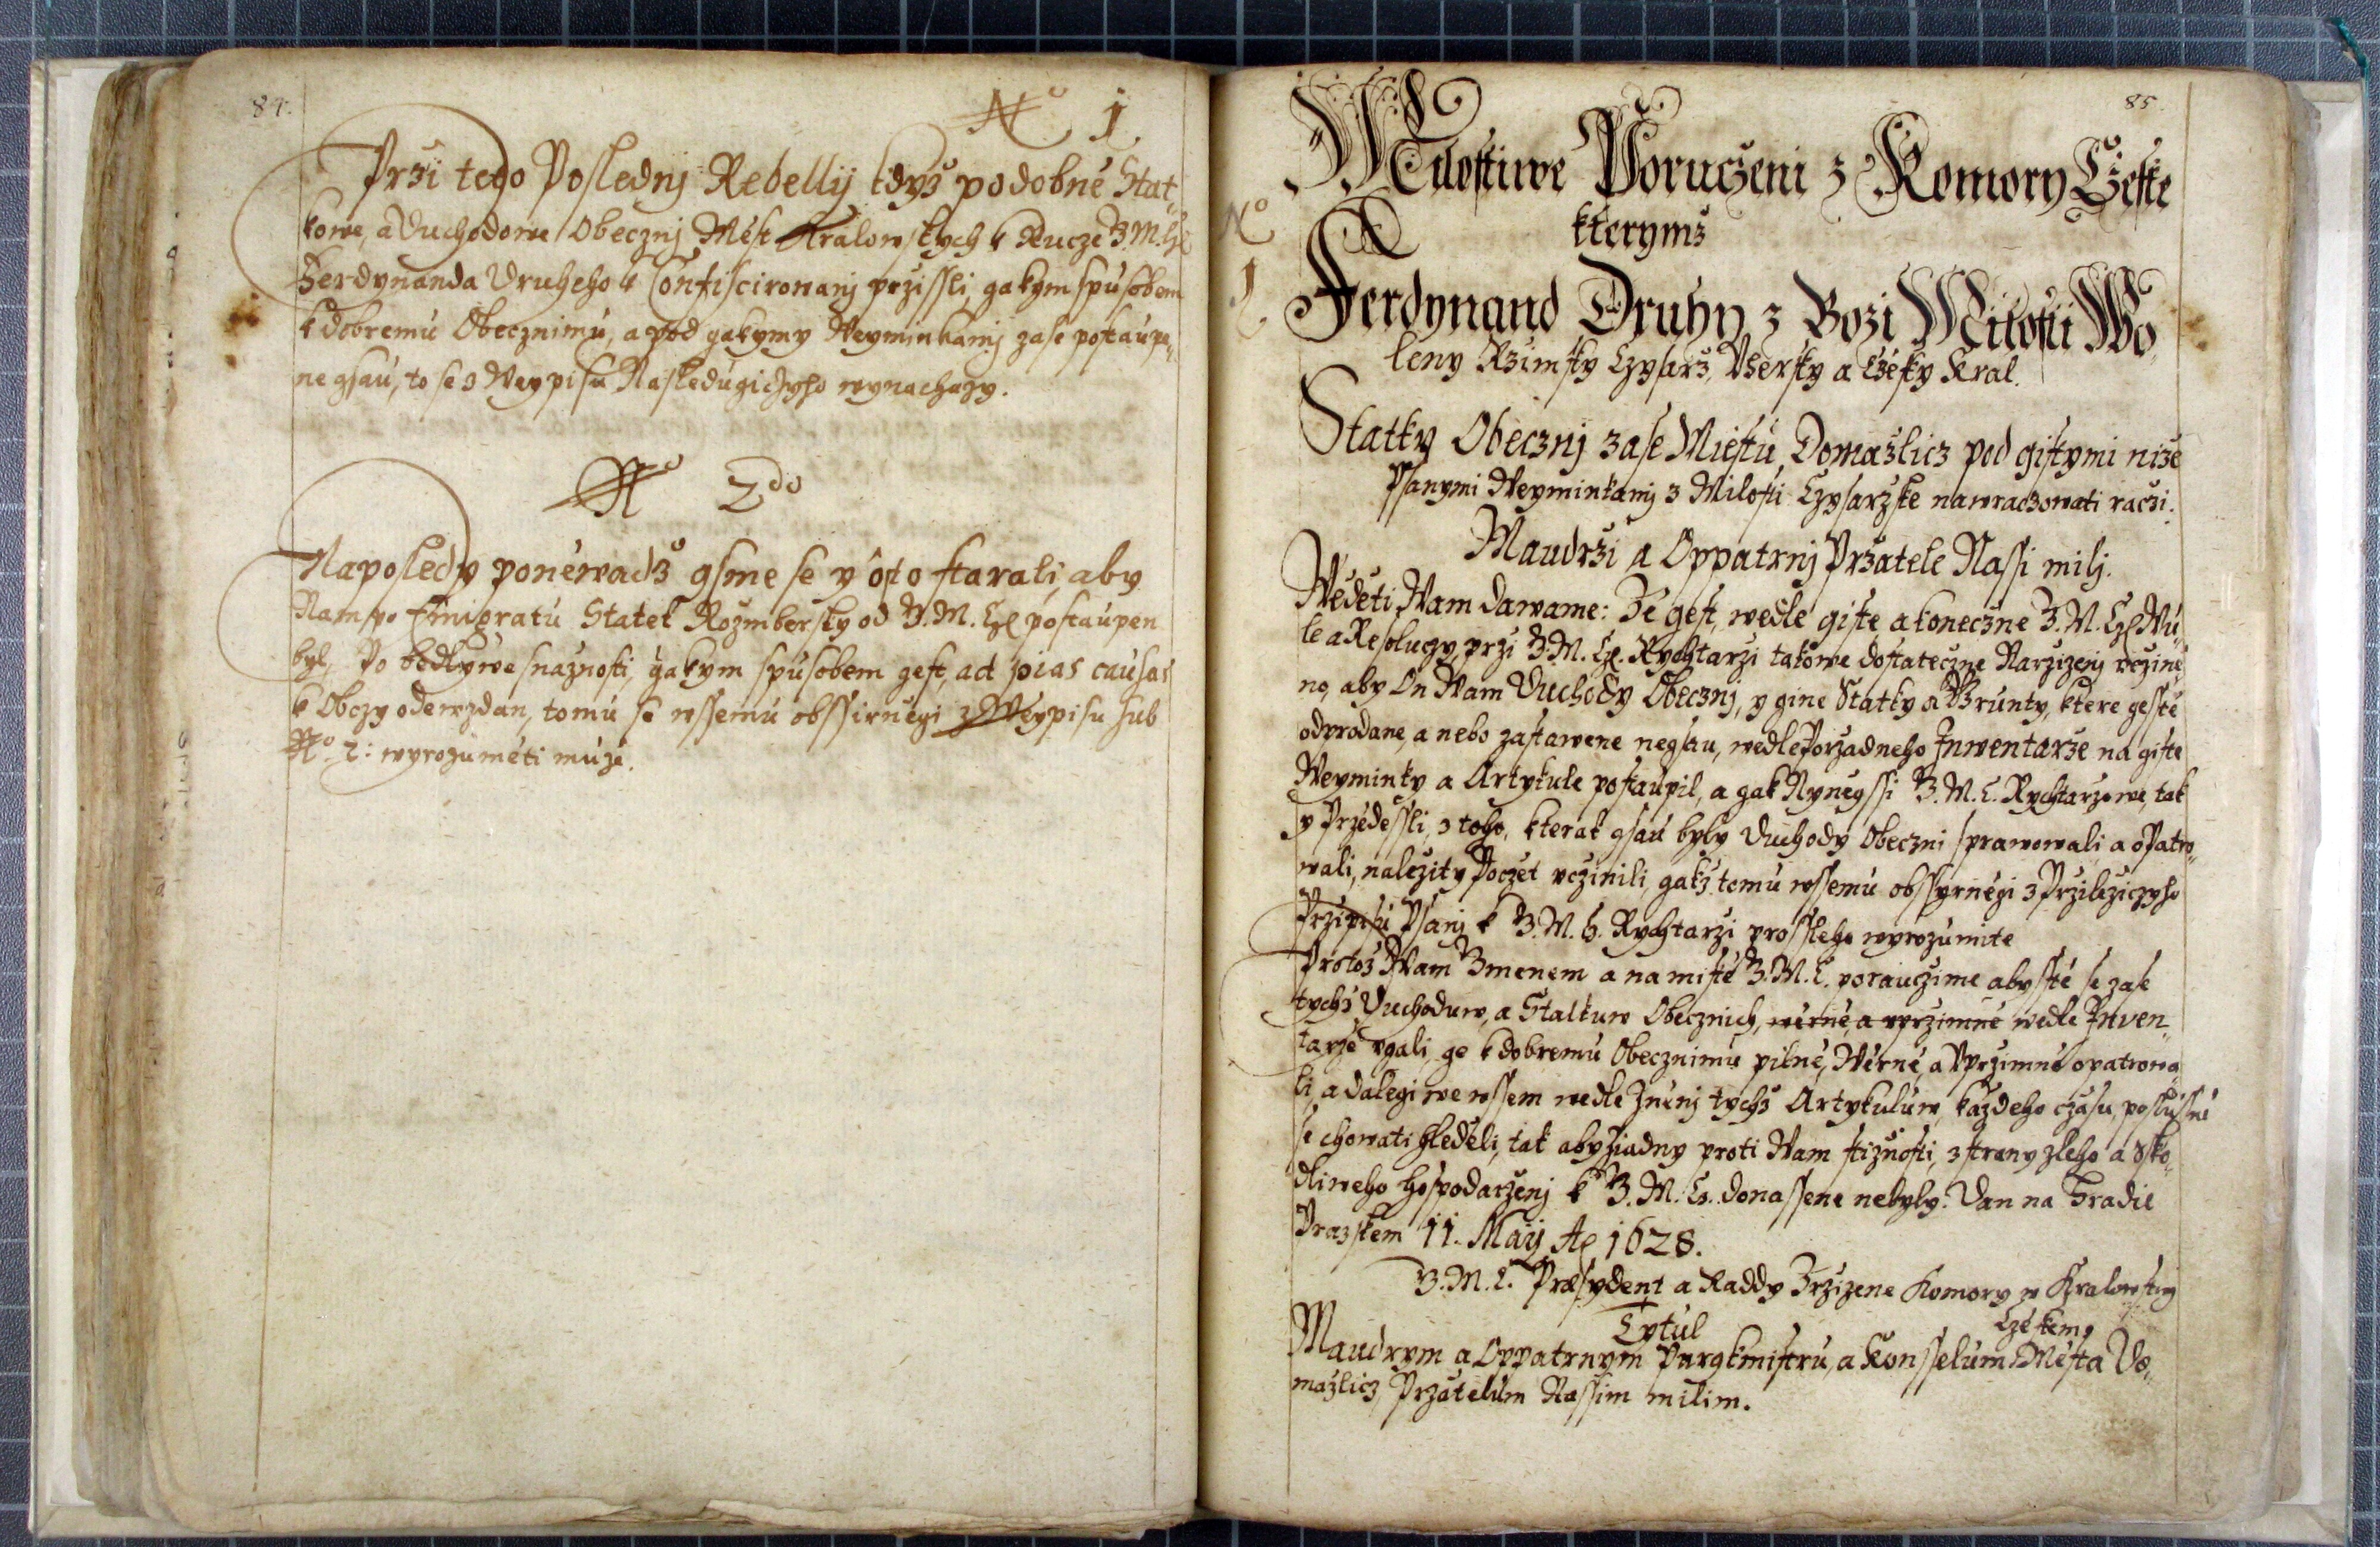 84.
No 1
Przi tedo Poslednj Rebellij kdyz podobné Stat,,
kowe, a Duchodowe Obecznj Mést Kralowskych k Rucze J. M. Cz
Ferdynanda Druheho k Confiscirowanj przissli, gakym spusobem
k dobremu Obecznimu, a pod gakymy Weyminkámj zase postaupe,,
ne gsau, to se z Weypisu Nasledugiczyho wynachazy.
No 2do
Naposledy ponéwadz gsme se y o to starali, aby
Nam po Emigratu Statek Rozmbersky od J. M. Cz postaupen
byl, Po bedlywe snaznosti, gakym spusobem gest, ad pias causas
k Obczy odewzdan, tomu se wssemu obssirnegi z Weypisu sub
No 2: wyrozuméti muze.
85.
Milostiwe Poruczeni z Komory Czeske
No kterymz
1
Ferdynand Druhy z Bozi Milosti Wo,,
leny Rzimsky Czysarz, Vhersky a Czesky Kral.
Statky Obecznj zase Miestu Domazlicz pod gistymi nize
Psanymi Weyminkamj z Milosti Czysarzske nawraczowati raczi.
Maudrzi a Oppatrnj Przatele Nassi milj.
Wedeti Wam dawame: Ze gest, wedle giste a koneczne J. M. Cz Wu,,
le a Resoluczy przi J. M. Cz. Rychtarzi takowe dostateczne Narzizenj vczine,,
no, aby On Wam Duchody Obecznj, y gine Statky a Grunty, ktere gesste
odprodane, a nebo zastawene negsau, wedle Porzadneho Inwentarze na giste
Weyminky a Artykule postaupil, a gak Nynegssi J. M. C. Rychtarzowe, tak
y Przedessli, z toho, kterak gsau byly Duchody Obeczni sprawowali a opatro,,
wali, nalezity Poczet vczinili, gakz tomu wssemu obssyrnegi z Przileziczyho
Przipisu Psanj k J. M. C. Rychtarzi prossleho wyrozumite
Protoz Wam Gmenem a na miste J. M. C. porauczime abysste se zase
tychz Duchoduw, a Statkuw Obecznich, wérné, a vprzimné wedle Inven,,
tarze vgali, ge k dobremu Obecznimu pilné, Wérné, a Vprzimné opatrowa,,
li, a dalegi we wssem wedle Znénj tychz Artykuluw, kazdeho czasu, poslussné
se chowati hledéli, tak aby ziadny proti Wam stiznosti, z strany zleho a sko,,
dliweho hospodarzenj k J. M. Cz. donassene nebyly. Dan na Hradie
Prazskem 11. Maij Ao 1628.
J. M. C. Præsydent a Raddy Zrzizene Komory w Kralowstwj
Czeskem
Tytul
Maudrym a Oppatrnym Purgkmistru, a Konsselum Mésta Do,,
mazlicz, Przatelum Nassim milim.